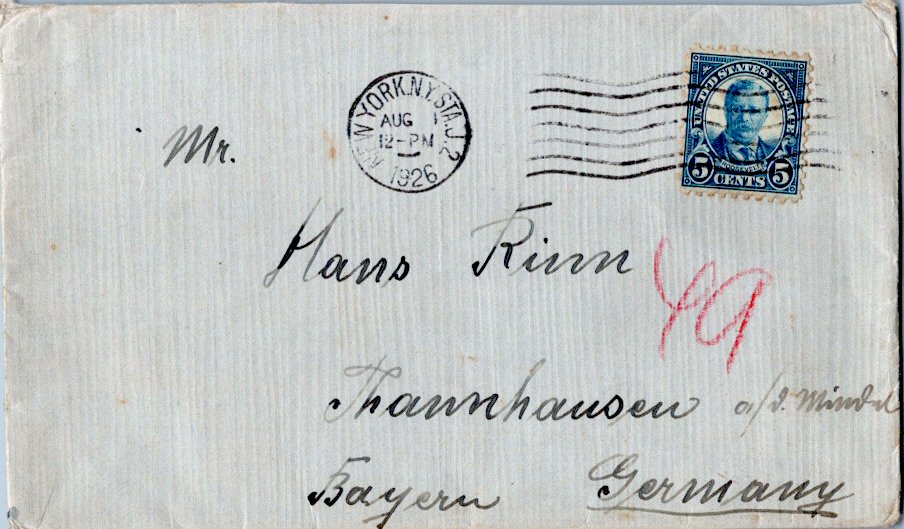 NEW YORK, N.Y. STA. J. 2
AUG 1
12-PM
1926
UNITED STATES POSTAGE
ROOSEVELT
5 CENTS 5
Mr.
Hans Rinn
49
Thannhausen a/d. Mindel
Bayern Germany